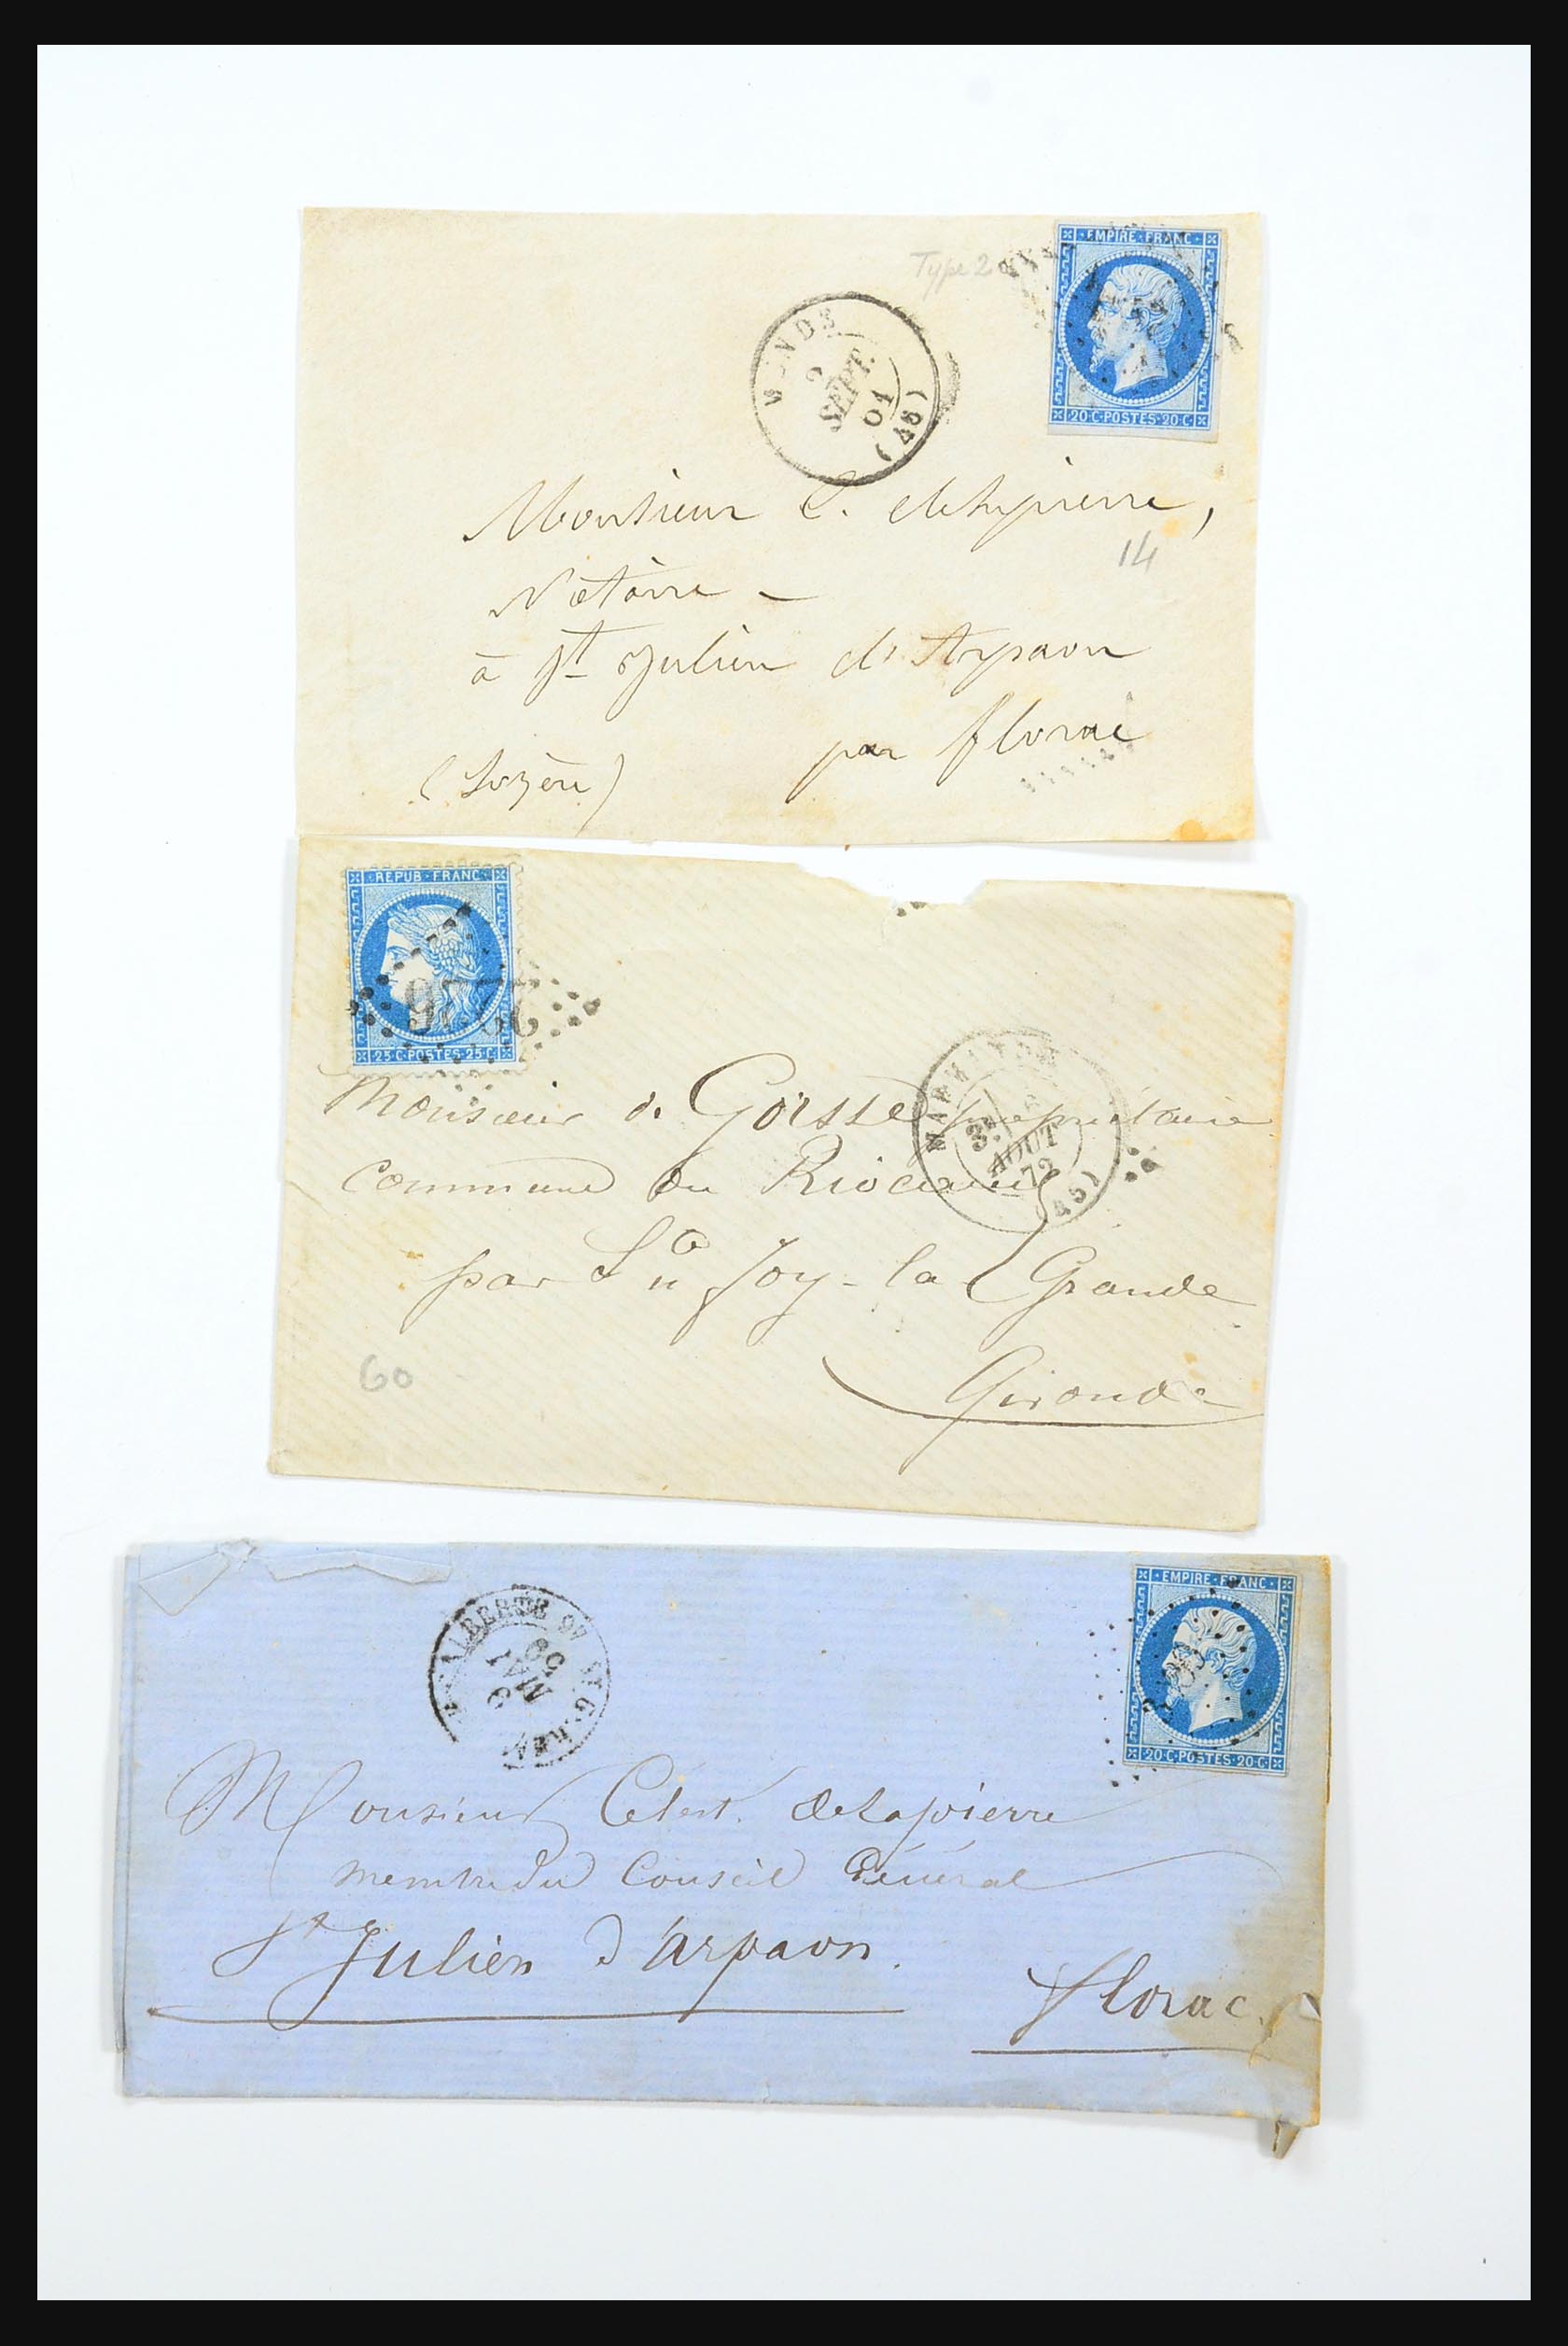 EMPIRE · FRANC
20·C·POSTES·20·C
Type 2
MENDE
2
SEPT.
61
(46)
Monsieur C. delapierre,
14
Notaire –
à St Julien d'Arpaon
par florac
(Lozère)
REPUB·FRANC
25·C·POSTES·25·C
2226
MARMANDE
3e
AOUT
72
(45)
Monsieur de Gorsse propriétaire
Commune de Riocaud
par Ste foy-la Grande
Gironde
60
EMPIRE·FRANC
20·C·POSTES·20·C
6
MAI
60
Monsieur Célest. Delapierre
membre du Conseil Général
St Julien d'arpaon.
florac